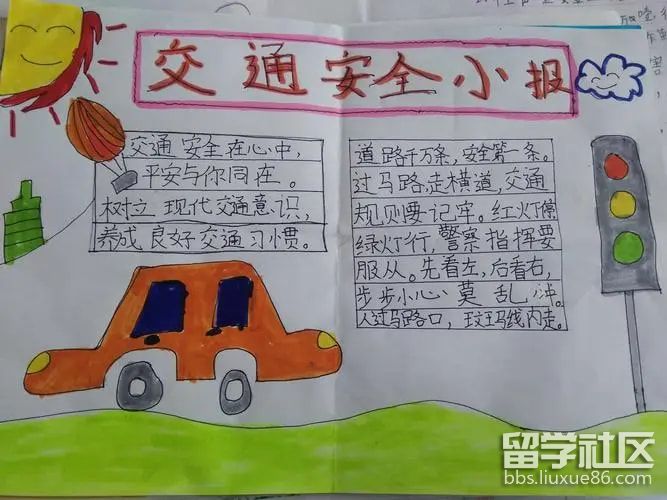 交通安全小报
交通安全在心中，
平安与你同在。
树立现代交通意识，
养成良好交通习惯。
道路千万条，安全第一条。
过马路走横道，交通
规则要记牢。红灯停
绿灯行，警察指挥要
服从。先看左，后看右，
步步小心莫乱冲。
人过马路口，斑马线内走。
留学社区
bbs.liuxue86.com